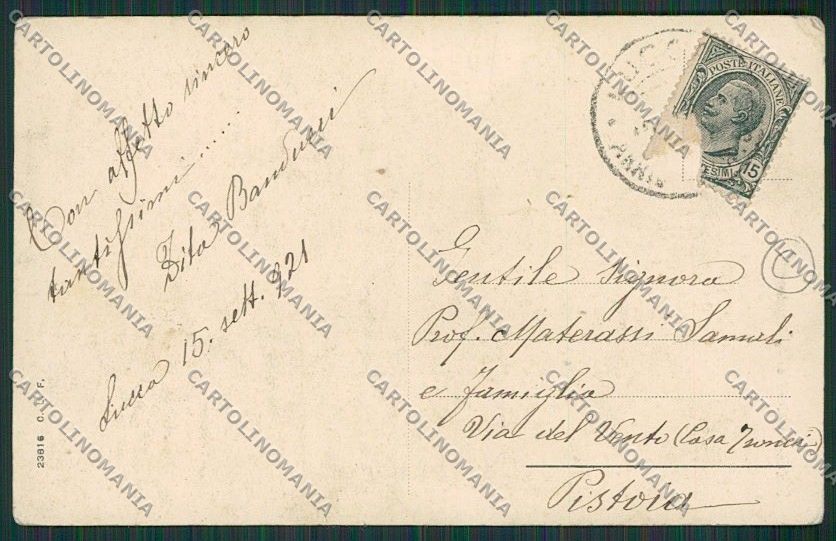 Con affetto sincero
tantissimi......
Zita Banducci
Lucca 15. sett. 921
23816 C. F.
POSTE ITALIANE
15
Gentile Signora
Prof. Materassi Samuli
e famiglia
Via del Vento (Casa
Pistoia
CARTOLINOMANIA